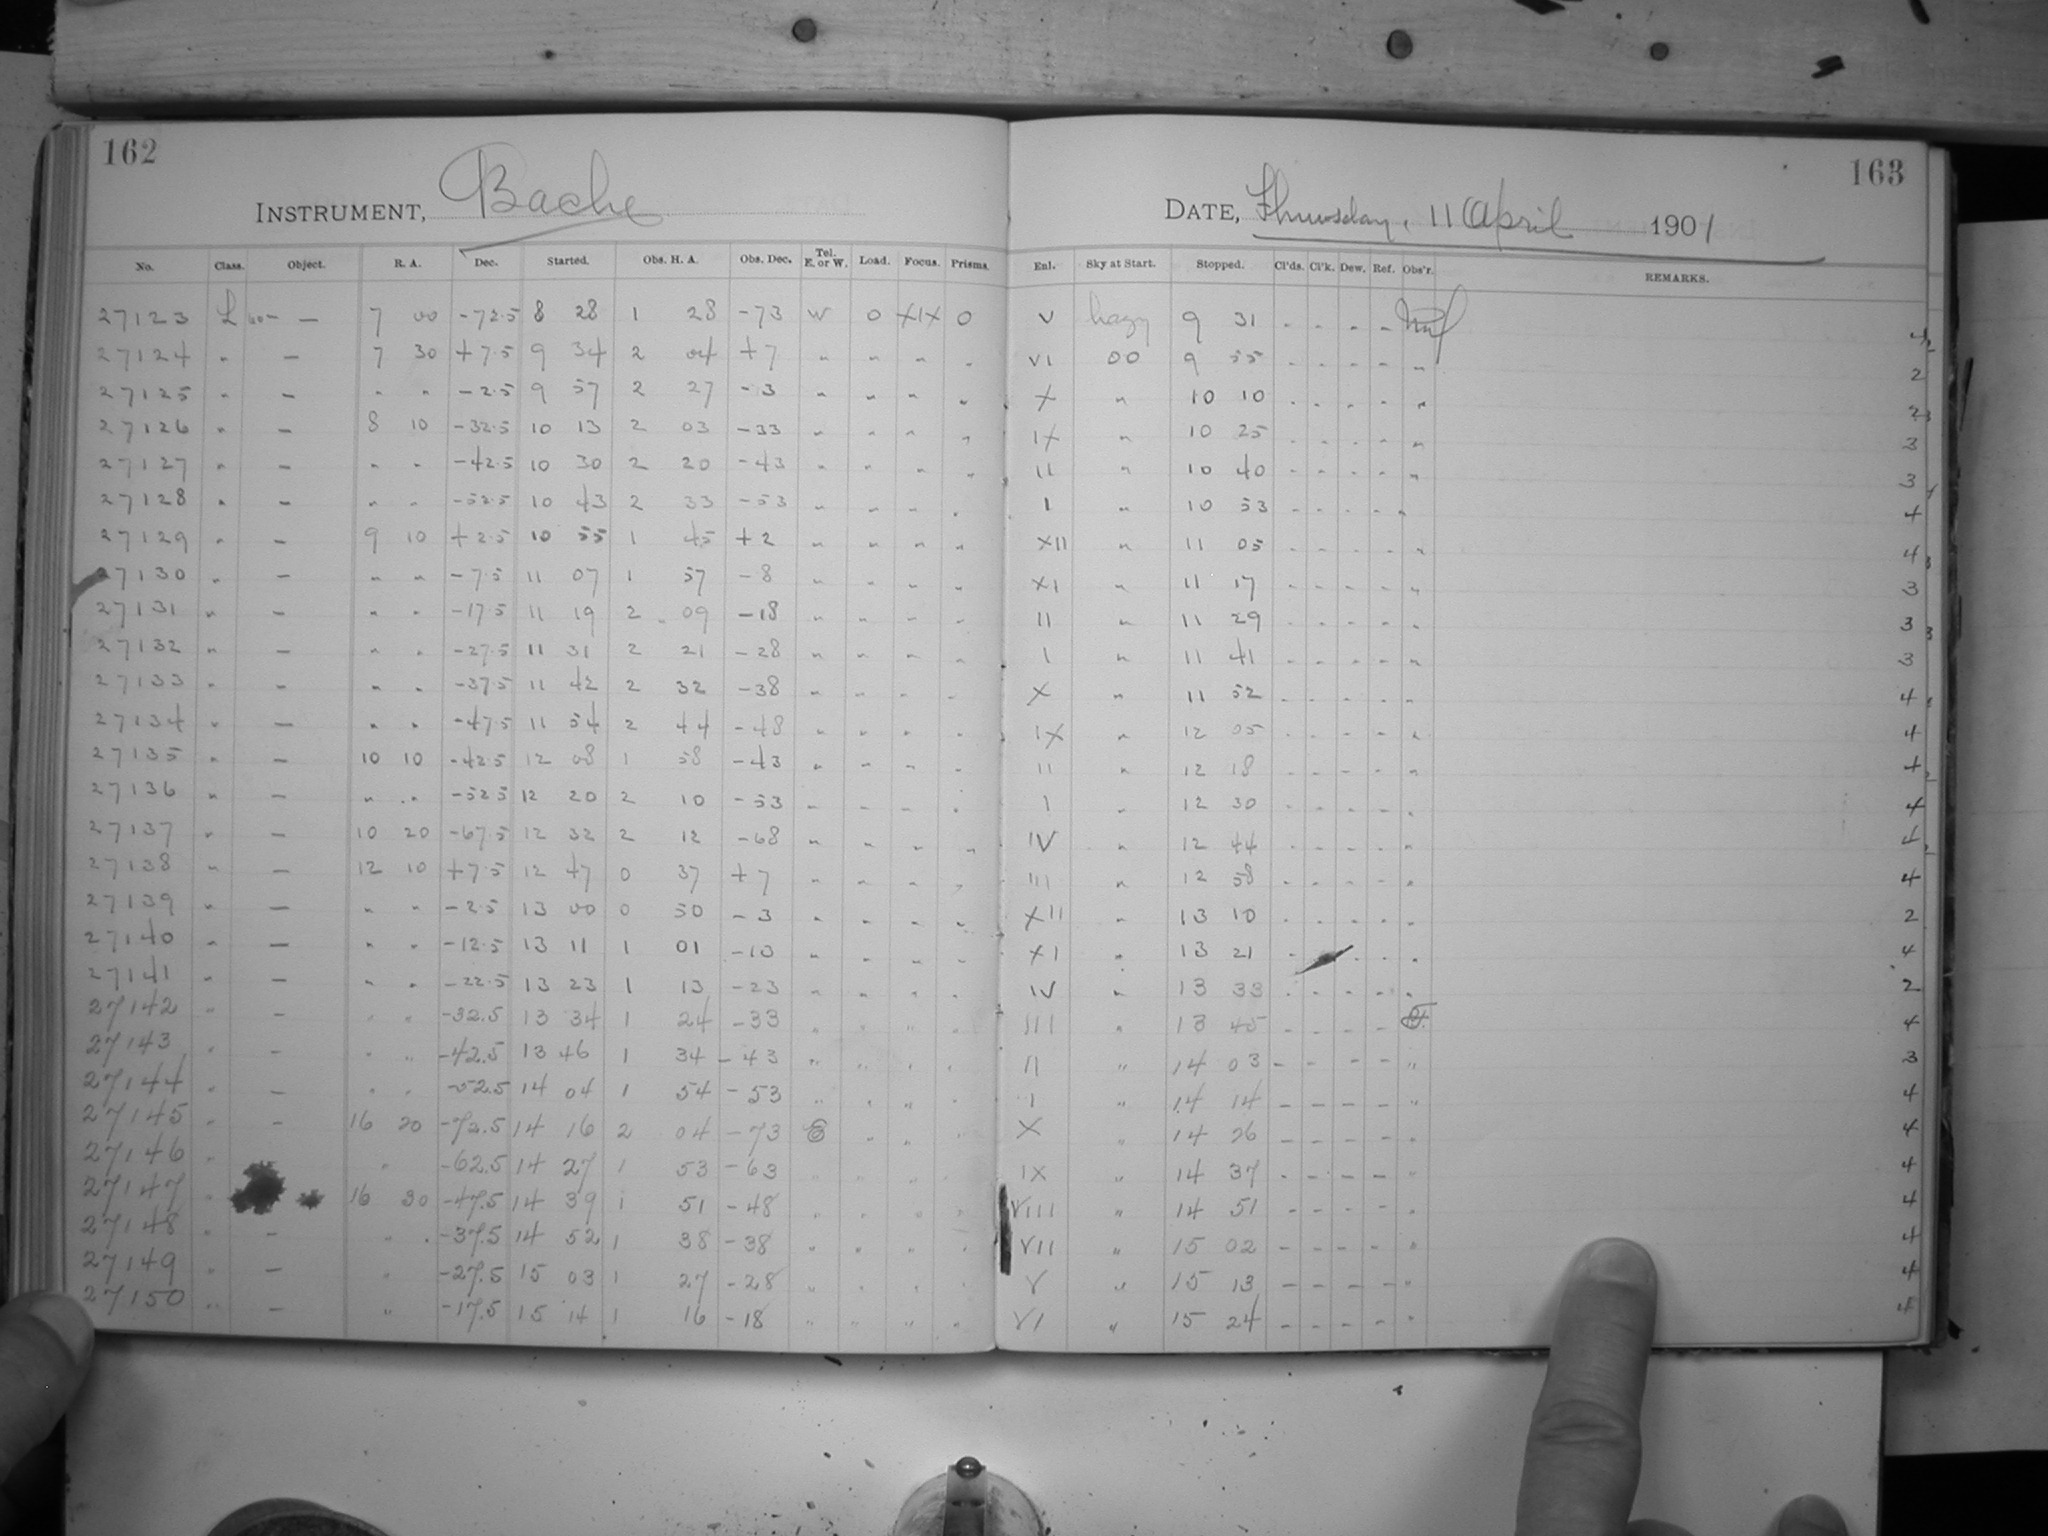 162
INSTRUMENT, Bache
No. Class. Object. R. A. Dec. Started. Obs. H. A. Obs. Dec. Tel. E. or W. Load. Focus. Prisms.
27123 L — 7 00 -72.5 8 28 1 28 -73 W 0 XIX 0
27124 " — 7 30 +7.5 9 34 2 04 +7 " " " "
27125 " — " " -2.5 9 57 2 27 -3 " " " "
27126 " — 8 10 -32.5 10 13 2 03 -33 " " " "
27127 " — " " -42.5 10 30 2 20 -43 " " " "
27128 " — " " -52.5 10 43 2 33 -53 " " " "
27129 " — 9 10 +2.5 10 55 1 45 +2 " " " "
27130 " — " " -7.5 11 07 1 57 -8 " " " "
27131 " — " " -17.5 11 19 2 09 -18 " " " "
27132 " — " " -27.5 11 31 2 21 -28 " " " "
27133 " — " " -37.5 11 42 2 32 -38 " " " "
27134 " — " " -47.5 11 54 2 44 -48 " " " "
27135 " — 10 10 -42.5 12 08 1 58 -43 " " " "
27136 " — " " -52.5 12 20 2 10 -53 " " " "
27137 " — 10 20 -67.5 12 32 2 12 -68 " " " "
27138 " — 12 10 +7.5 12 47 0 37 +7 " " " "
27139 " — " " -2.5 13 00 0 50 -3 " " " "
27140 " — " " -12.5 13 11 1 01 -13 " " " "
27141 " — " " -22.5 13 23 1 13 -23 " " " "
27142 " — " " -32.5 13 34 1 24 -33 " " " "
27143 " — " " -42.5 13 46 1 34 -43 " " " "
27144 " — " " -52.5 14 04 1 54 -53 " " " "
27145 " — 16 20 -72.5 14 16 2 04 -73 E " " "
27146 " " -62.5 14 27 1 53 -63 " " " "
27147 " 16 30 -47.5 14 39 1 51 -48 " " " "
27148 " — " " -37.5 14 52 1 38 -38 " " " "
27149 " — " -27.5 15 03 1 27 -28 " " " "
27150 " — " -17.5 15 14 1 16 -18 " " " "
163
DATE, Thursday, 11 April 1901
Enl. Sky at Start. Stopped. Cl'ds. Cl'k. Dew. Ref. Obs'r. REMARKS.
V hazy 9 31 - - - - 4
VI 00 9 55 - - - - " 2
X " 10 10 - - - - " 2
IX " 10 25 - - - - " 3
II " 10 40 - - - - " 3
I " 10 53 - - - - " 4
XII " 11 05 - - - - " 4
XI " 11 17 - - - - " 3
II " 11 29 - - - - " 3
I " 11 41 - - - - " 3
X " 11 52 - - - - " 4
IX " 12 05 - - - - " 4
II " 12 18 - - - - " 4
I " 12 30 - - - - " 4
IV " 12 44 - - - - " 4
III " 12 58 - - - - " 4
XII " 13 10 - - - - " 2
XI " 13 21 - - - " 4
IV " 13 33 - - - - " 2
III " 13 45 - - - - 4
II " 14 03 - - - - " 3
I " 14 14 - - - - " 4
X " 14 26 - - - - " 4
IX " 14 37 - - - - " 4
VIII " 14 51 - - - - " 4
VII " 15 02 - - - - " 4
V " 15 13 - - - - " 4
VI " 15 24 - - - - " 4